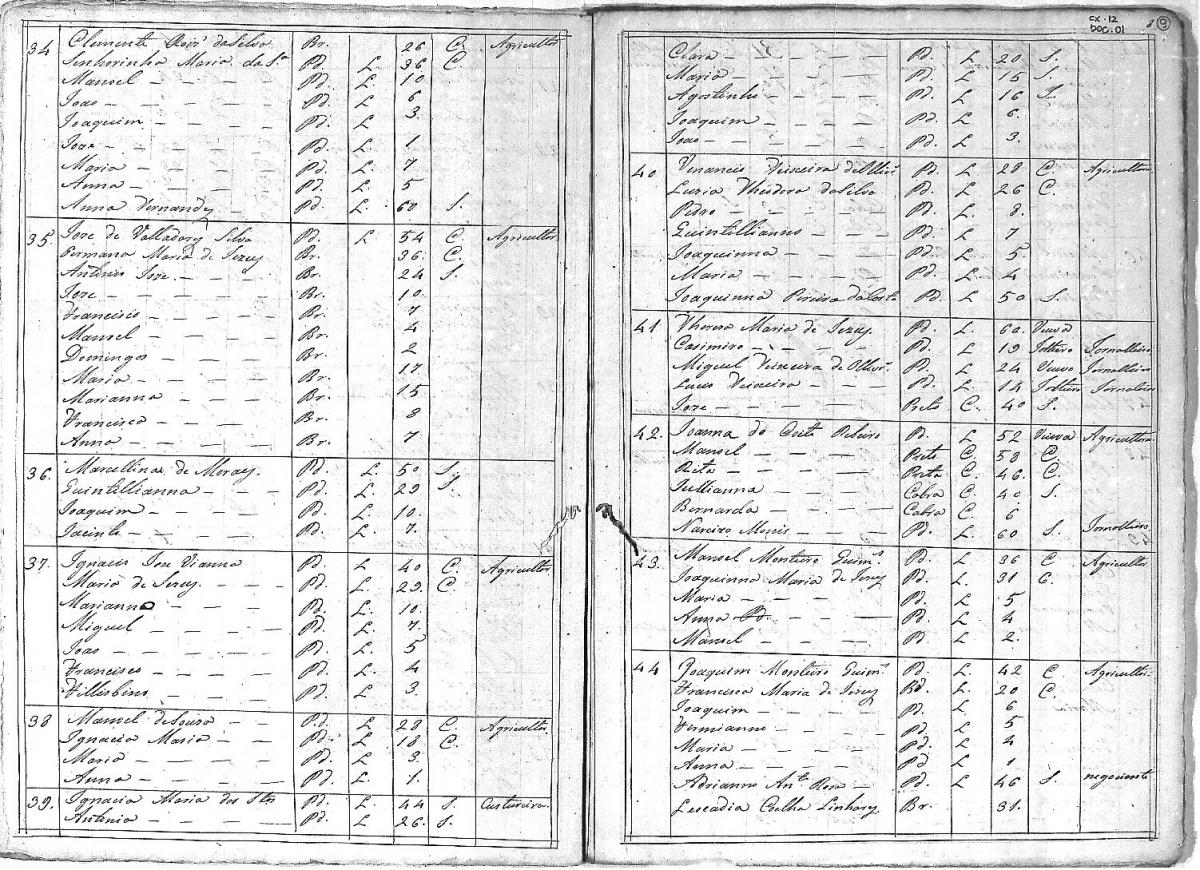 34 Clemente Roiz' da Silva Br. 26 C. Agricultor
Senhorinha Maria da Sa. Pd. L. 36 C.
Manoel Pd. L 10
Joao Pd. L 6
Joaquim Pd. L 3.
Joze Pd. L 1
Maria Pd. L 7
Anna Pd. L 5
Anna Fernandez Pd. L. 60 S.
35. Joze de Valladarez Silva Pd. L 54 C. Agricultor
Germana Maria de Jezuz Br. 36. C.
Antonio Joze. Br. 24 S.
Joze Br. 10.
Francisco Br. 7
Manoel Br. 4
Domingos Br. 2
Maria Br. 17
Marianna Br. 15
Francisca Br. 8
Anna Br. 7
36. Marcellina de Moraez. Pd. L. 50 S.
Quintillianna Pd. L. 29 S.
Joaquim Pd. L 10.
Jacintho Pd. L 7.
37. Ignacio Joze Vianna Pd. L 40 C. Agricultor
Maria de Jezuz. Pd. L. 29. C.
Marianno Pd. L. 10.
Miguel Pd. L. 7.
Joao Pd. L 5
Francisco Pd. L. 4
Pd. L 3.
38 Manoel de Souza Pd. L 28 C. Agricultor.
Ignacia Maria Pd. L 18 C.
Maria Pd. L 3.
Anna Pd. L 1.
39. Ignacia Maria dos Stos Pd. L. 44 S. Custureira.
Antonia Pd. L 26. S.
cx. 12
Doc. 01
8 9
Clara Pd. L 20 S.
Maria Pd. L 15 S.
Agostinho Pd. L 16 S.
Joaquim Pd. L 6.
Joao Pd. L 3.
40 Venancio Teixeira d'Olivr.a Pd. L 28 C. Agricultor.
Luzia Theodora da Silva Pd. L 26 C.
Pedro Pd. L. 8.
Quintillianno Pd. L 7
Joaquinna Pd. L 5.
Maria Pd. L 4
Joaquinna Pereira da Costa Pd. L 50 S.
41 Thereza Maria de Jezuz. Pd. L. 60. Viuva
Casimiro Pd. L 19 Solteiro Jornalleiro
Miguel Teixeira de Olivr.a Pd. L 24 Viuvo Jornalleiro
Lucas Teixeira Pd. L 14 Solteiro Jornaleiro
Joze Preto C. 40 S.
42. Joanna do Couto Ribeiro Pd. L 52 Viuva Agricultora
Manoel Preto C. 58 C.
Rita Preta C. 46. C.
Jullianna Cabra C. 40 S.
Bernarda Cabra C. 6
Narcizo Moniz Pd. L 60 S. Jornalleiro
43. Manoel Monteiro Guimes. Pd. L 36 C Agricultor
Joaquinna Maria de Jezuz Pd. L. 31 C.
Maria Pd. L 5
Anna Pd. Pd. L 4
Manoel Pd. L 2.
44 Joaquim Monteiro Guimes. Pd. L 42 C Agricultor.
Francisca Maria de Jezuz Pd. L. 20 C.
Joaquim Pd. L. 6
Firmianno Pd. L 5
Maria Pd. L 2
Anna Pd. L 1
Adrianno Anto. Roza Pd. L 46 S. negociente
Leocadia Coelha Linharez Br. 31.